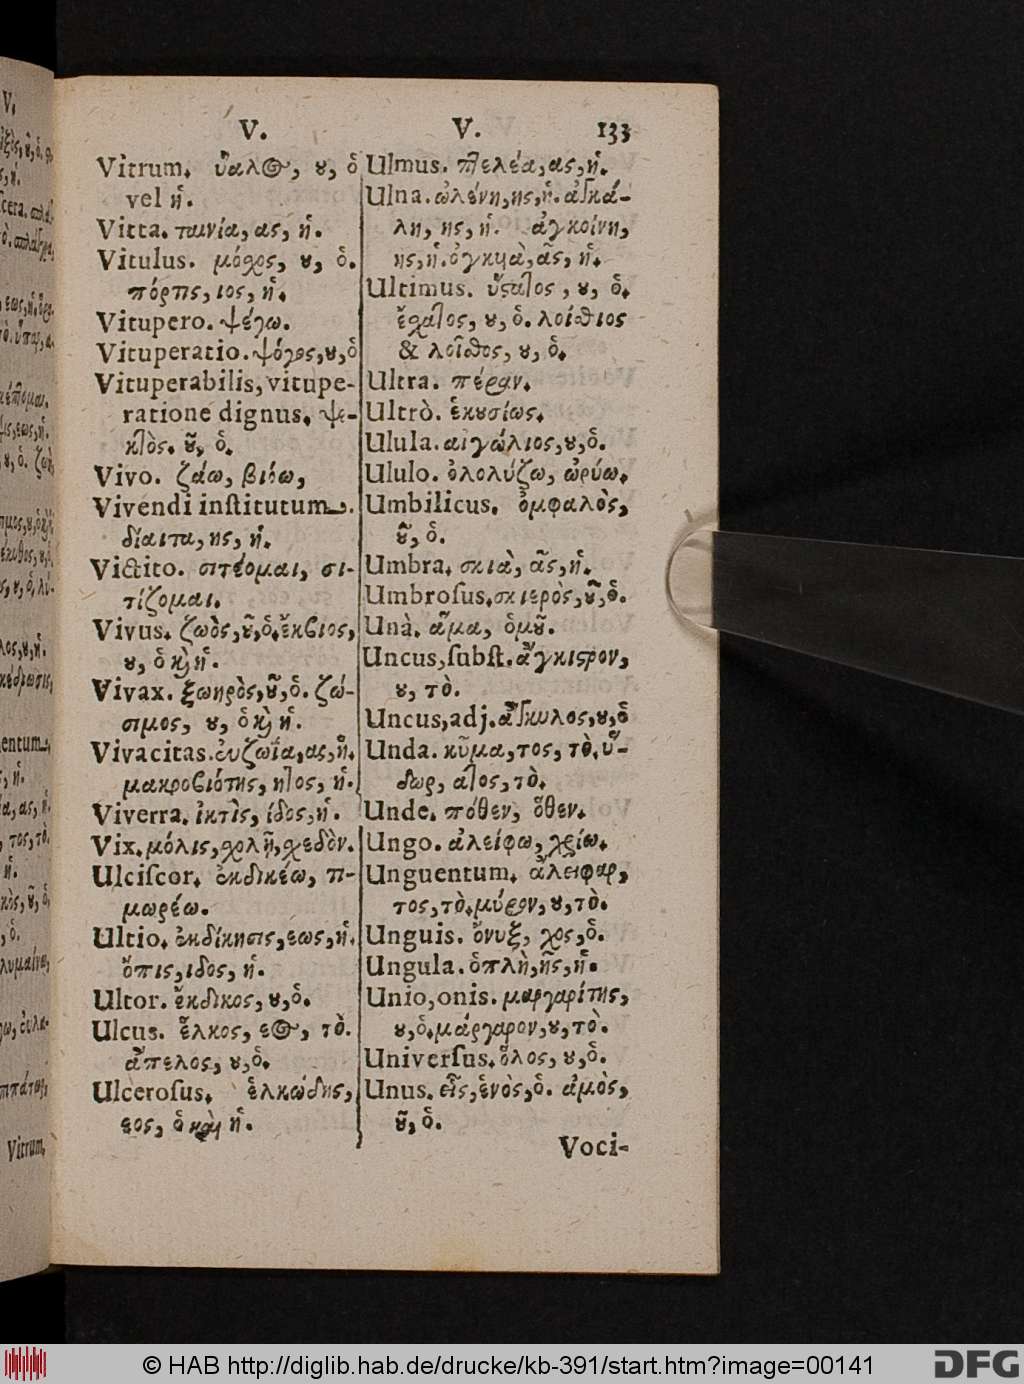 V.
Vitrum. ὕαλος, ου, ὁ
vel ἡ.
Vitta. ταινία, ας, ἡ.
Vitulus. μόσχος, ου, ὁ.
πόρτις, ιος, ἡ.
Vitupero. ψέγω.
Vituperatio. ψόγος, ου, ὁ
Vituperabilis, vitupe-
ratione dignus. ψε-
κτὸς. οῦ, ὁ.
Vivo. ζάω, βιόω,
Vivendi inſtitutum.
δίαιτα, ης, ἡ.
Victito. σιτέομαι, σι-
τίζομαι.
Vivus. ζωὸς, οῦ, ὁ. ἔκβιος,
ου, ὁ καὶ ἡ.
Vivax. ξωηρὸς, οῦ, ὁ. ζώ-
σιμος, ου, ὁ καὶ ἡ.
Vivacitas. εὐζωΐα, ας, ἡ.
μακροβιότης, ητος, ἡ.
Viverra. ἰκτὶς, ίδος, ἡ.
Vix. μόλις, σχολῇ, σχεδὸν.
Ulciſcor. ἐκδικέω, τι-
μωρέω.
Ultio. ἐκδίκησις, εως, ἡ.
ὄπις, ιδος, ἡ.
Ultor. ἔκδικος, ου, ὁ.
Ulcus. ἕλκος, εος, τὸ.
ἄπελος, ου, ὁ.
Ulceroſus. ἑλκώδης,
εος, ὁ καὶ ἡ.
V. 133
Ulmus. πτελέα, ας, ἡ.
Ulna. ὠλένη, ης, ἡ. ἀγκά-
λη, ης, ἡ. ἀγκοίνη,
ης, ἡ. ὀγκιὰ, ᾶς, ἡ.
Ultimus. ὕστατος, ου, ὁ.
ἔσχατος, ου, ὁ. λοίσθιος
& λοῖσθος, ου, ὁ.
Ultra. πέραν.
Ultrò. ἑκουσίως.
Ulula. αἰγώλιος, ου, ὁ.
Ululo. ὀλολύζω, ὠρύω.
Umbilicus. ὀμφαλὸς,
οῦ, ὁ.
Umbra. σκιὰ, ᾶς, ἡ.
Umbroſus. σκιερὸς, οῦ, ὁ.
Unà. ἅμα, ὁμοῦ.
Uncus, ſubſt. ἄγκιστρον,
ου, τὸ.
Uncus, adj. ἄγκυλος, ου, ὁ
Unda. κῦμα, τος, τὸ. ὕ-
δωρ, ατος, τὸ.
Unde. πόθεν, ὅθεν.
Ungo. ἀλείφω, χρίω.
Unguentum. ἄλειφαρ,
τος, τὸ. μύρον, ου, τὸ.
Unguis. ὄνυξ, χος, ὁ.
Ungula. ὁπλὴ, ῆς, ἡ.
Unio, onis. μαργαρίτης,
ου, ὁ. μάργαρον, ου, τὸ.
Univerſus. ὅλος, ου, ὁ.
Unus. εἷς, ἑνὸς, ὁ. ἀμὸς,
οῦ, ὁ.
Voci-
V.
Vitrum,
© HAB http://diglib.hab.de/drucke/kb-391/start.htm?image=00141
DFG